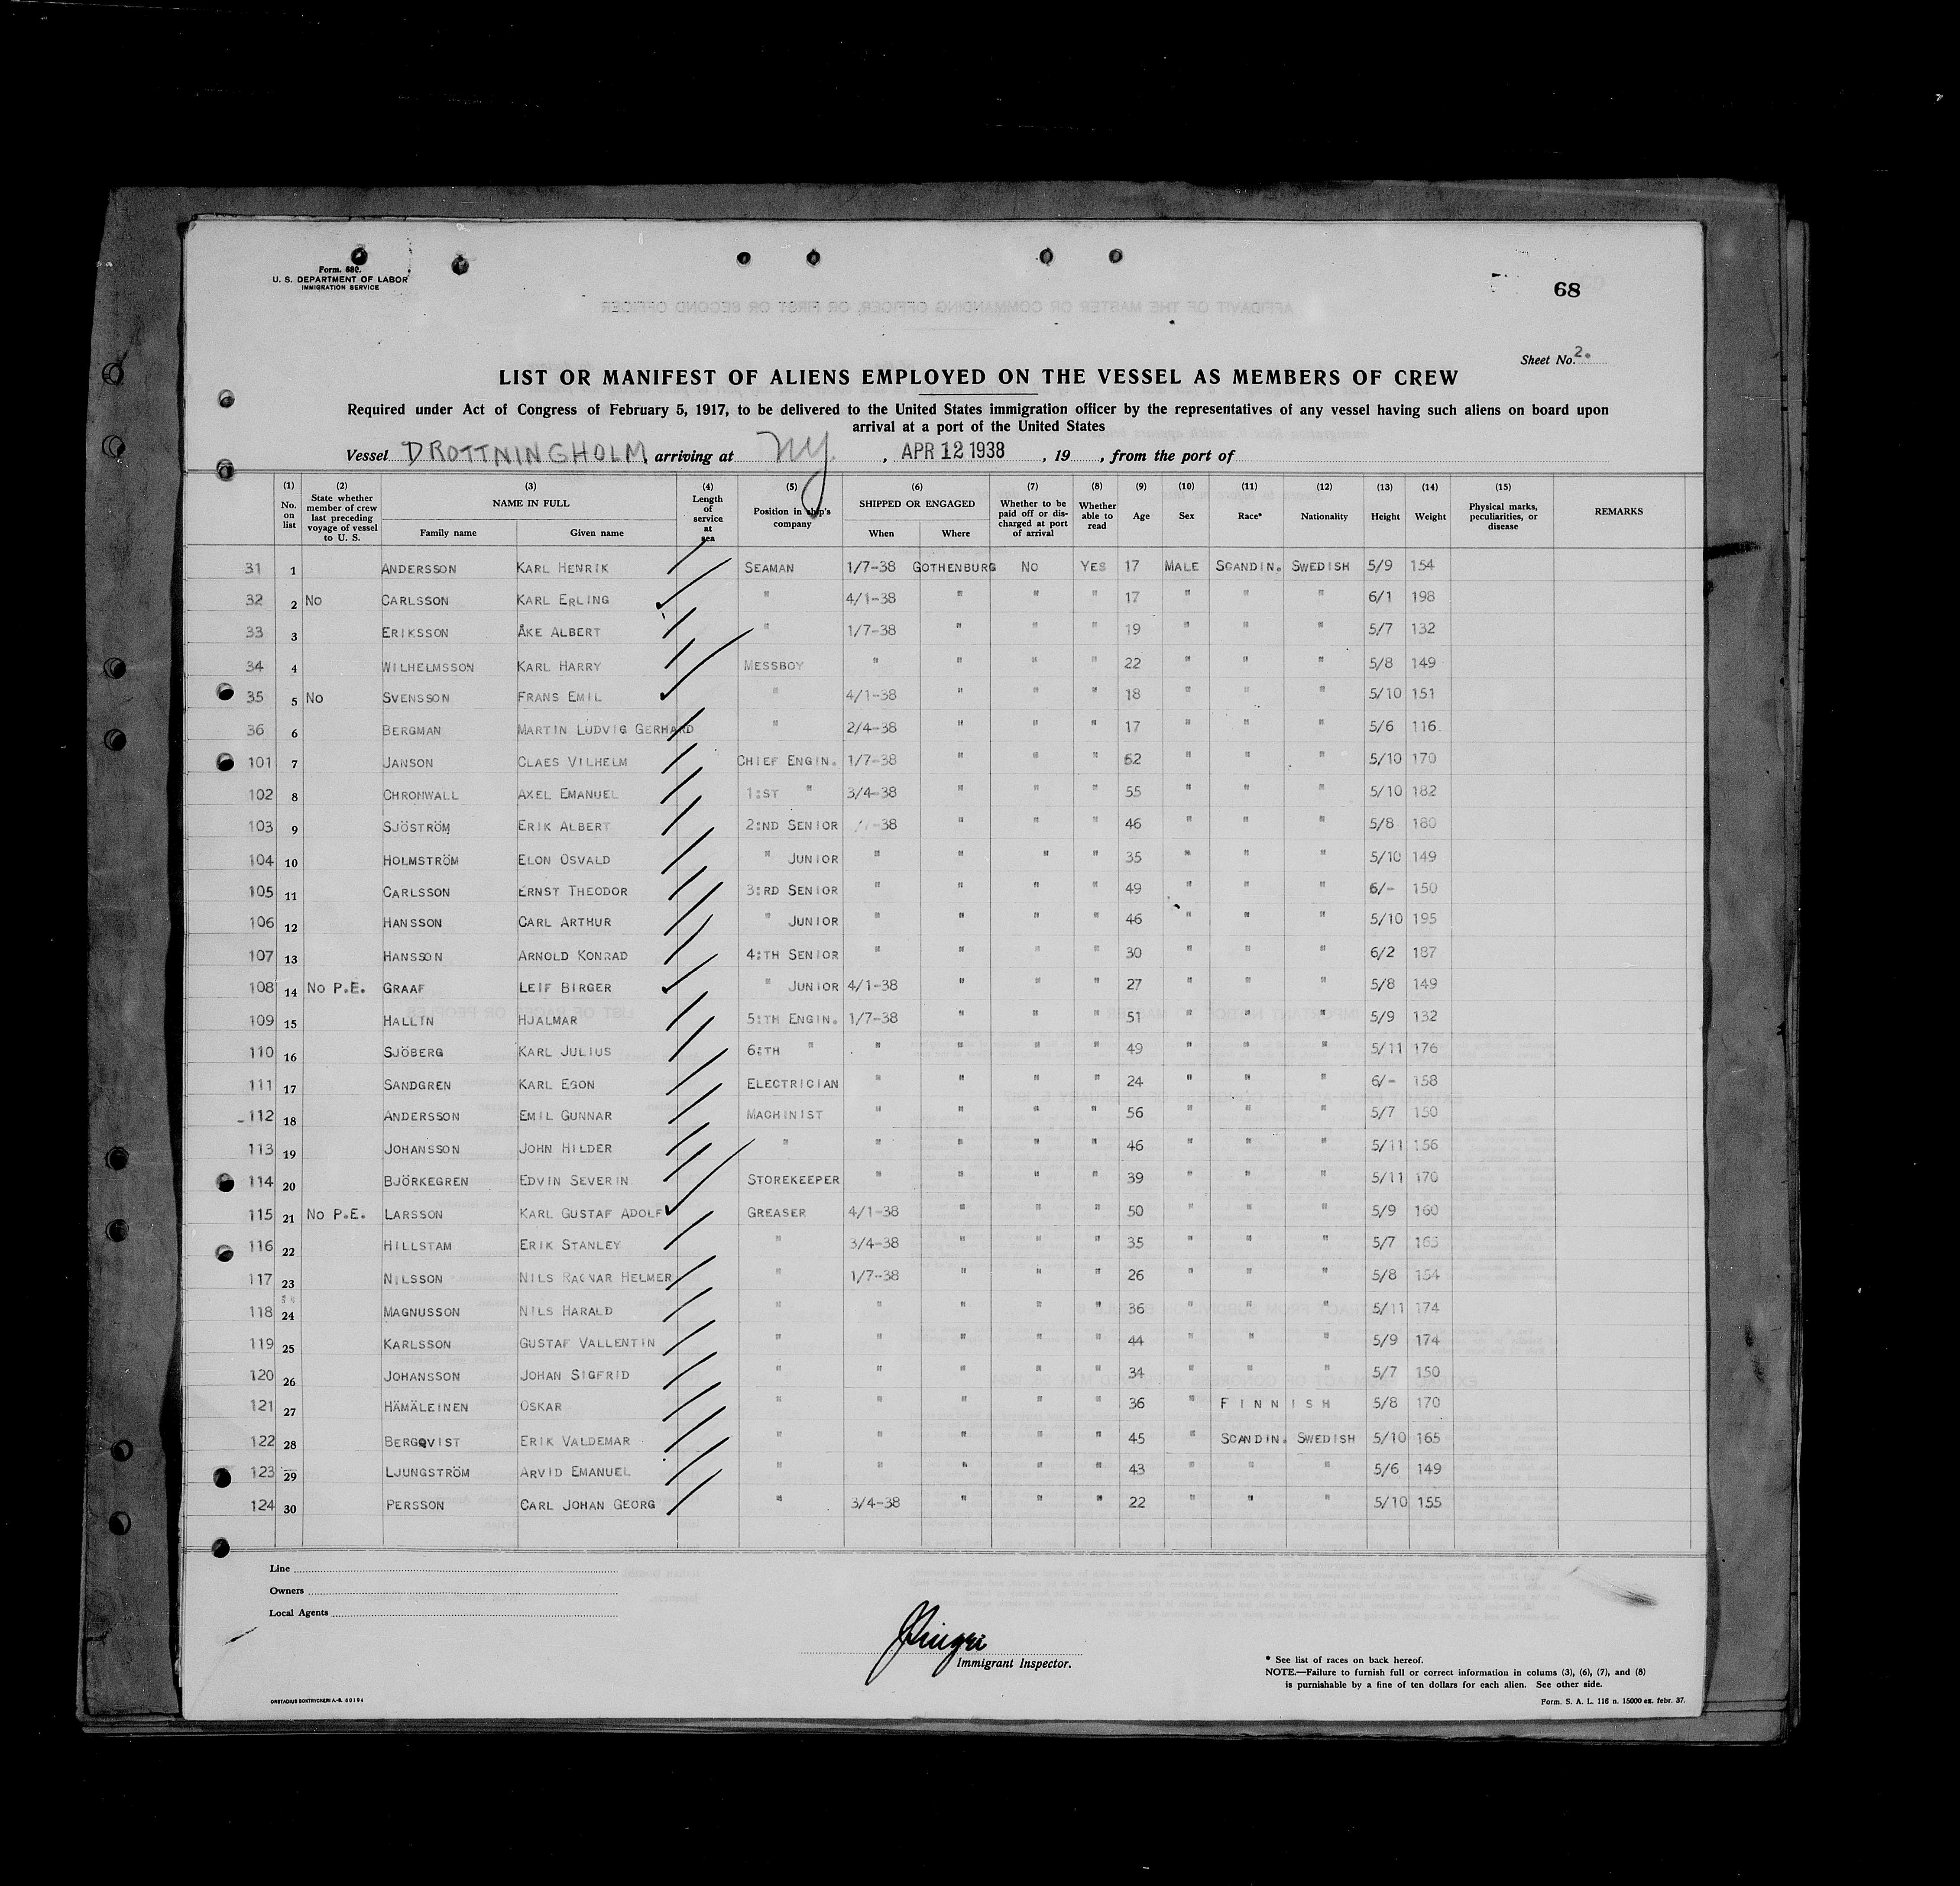 Form. 680.
U. S. DEPARTMENT OF LABOR
IMMIGRATION SERVICE
68
Sheet No. 2.
LIST OR MANIFEST OF ALIENS EMPLOYED ON THE VESSEL AS MEMBERS OF CREW
Required under Act of Congress of February 5, 1917, to be delivered to the United States immigration officer by the representatives of any vessel having such aliens on board upon
arrival at a port of the United States
Vessel DROTTNINGHOLM, arriving at NY., APR 12 1938, 19 , from the port of
(1) No. on list (2) State whether member of crew last preceding voyage of vessel to U. S. (3) NAME IN FULL Family name Given name (4) Length of service at sea (5) Position in ship's company (6) SHIPPED OR ENGAGED When Where (7) Whether to be paid off or discharged at port of arrival (8) Whether able to read (9) Age (10) Sex (11) Race* (12) Nationality (13) Height (14) Weight (15) Physical marks, peculiarities, or disease REMARKS
31 1 ANDERSSON KARL HENRIK SEAMAN 1/7-38 GOTHENBURG NO YES 17 MALE SCANDIN. SWEDISH 5/9 154
32 2 No CARLSSON KARL ERLING " 4/1-38 " " " 17 " " " 6/1 198
33 3 ERIKSSON ÅKE ALBERT " 1/7-38 " " " 19 " " " 5/7 132
34 4 WILHELMSSON KARL HARRY MESSBOY " " " " 22 " " " 5/8 149
35 5 No SVENSSON FRANS EMIL " 4/1-38 " " " 18 " " " 5/10 151
36 6 BERGMAN MARTIN LUDVIG GERHARD " 2/4-38 " " " 17 " " " 5/6 116
101 7 JANSON CLAES VILHELM CHIEF ENGIN. 1/7-38 " " " 62 " " " 5/10 170
102 8 CHRONWALL AXEL EMANUEL 1:ST " 3/4-38 " " " 55 " " " 5/10 182
103 9 SJÖSTRÖM ERIK ALBERT 2:ND SENIOR -38 " " " 46 " " " 5/8 180
104 10 HOLMSTRÖM ELON OSVALD " JUNIOR " " " " 35 " " " 5/10 149
105 11 CARLSSON ERNST THEODOR 3:RD SENIOR " " " " 49 " " " 6/- 150
106 12 HANSSON CARL ARTHUR " JUNIOR " " " " 46 " " " 5/10 195
107 13 HANSSON ARNOLD KONRAD 4:TH SENIOR " " " " 30 " " " 6/2 187
108 14 No P.E. GRAAF LEIF BIRGER " JUNIOR 4/1-38 " " " 27 " " " 5/8 149
109 15 HALLIN HJALMAR 5:TH ENGIN. 1/7-38 " " " 51 " " " 5/9 132
110 16 SJÖBERG KARL JULIUS 6:TH " " " " " 49 " " " 5/11 176
111 17 SANDGREN KARL EGON ELECTRICIAN " " " " 24 " " " 6/- 158
112 18 ANDERSSON EMIL GUNNAR MACHINIST " " " " 56 " " " 5/7 150
113 19 JOHANSSON JOHN HILDER " " " " " 46 " " " 5/11 156
114 20 BJÖRKEGREN EDVIN SEVERIN STOREKEEPER " " " " 39 " " " 5/11 170
115 21 No P.E. LARSSON KARL GUSTAF ADOLF GREASER 4/1-38 " " " 50 " " " 5/9 160
116 22 HILLSTAM ERIK STANLEY " 3/4-38 " " " 35 " " " 5/7 163
117 23 NILSSON NILS RAGNAR HELMER " 1/7-38 " " " 26 " " " 5/8 154
118 24 MAGNUSSON NILS HARALD " " " " " 36 " " " 5/11 174
119 25 KARLSSON GUSTAF VALLENTIN " " " " " 44 " " " 5/9 174
120 26 JOHANSSON JOHAN SIGFRID " " " " " 34 " " " 5/7 150
121 27 HÄMÄLEINEN OSKAR " " " " " 36 " FINNISH 5/8 170
122 28 BERGQVIST ERIK VALDEMAR " " " " " 45 " SCANDIN. SWEDISH 5/10 165
123 29 LJUNGSTRÖM ARVID EMANUEL " " " " " 43 " " " 5/6 149
124 30 PERSSON CARL JOHAN GEORG " 3/4-38 " " " 22 " " " 5/10 155
Line
Owners
Local Agents
Immigrant Inspector.
* See list of races on back hereof.
NOTE.—Failure to furnish full or correct information in colums (3), (6), (7), and (8)
is punishable by a fine of ten dollars for each alien. See other side.
Form. S. A. L. 116 n. 15000 ex. febr. 37.